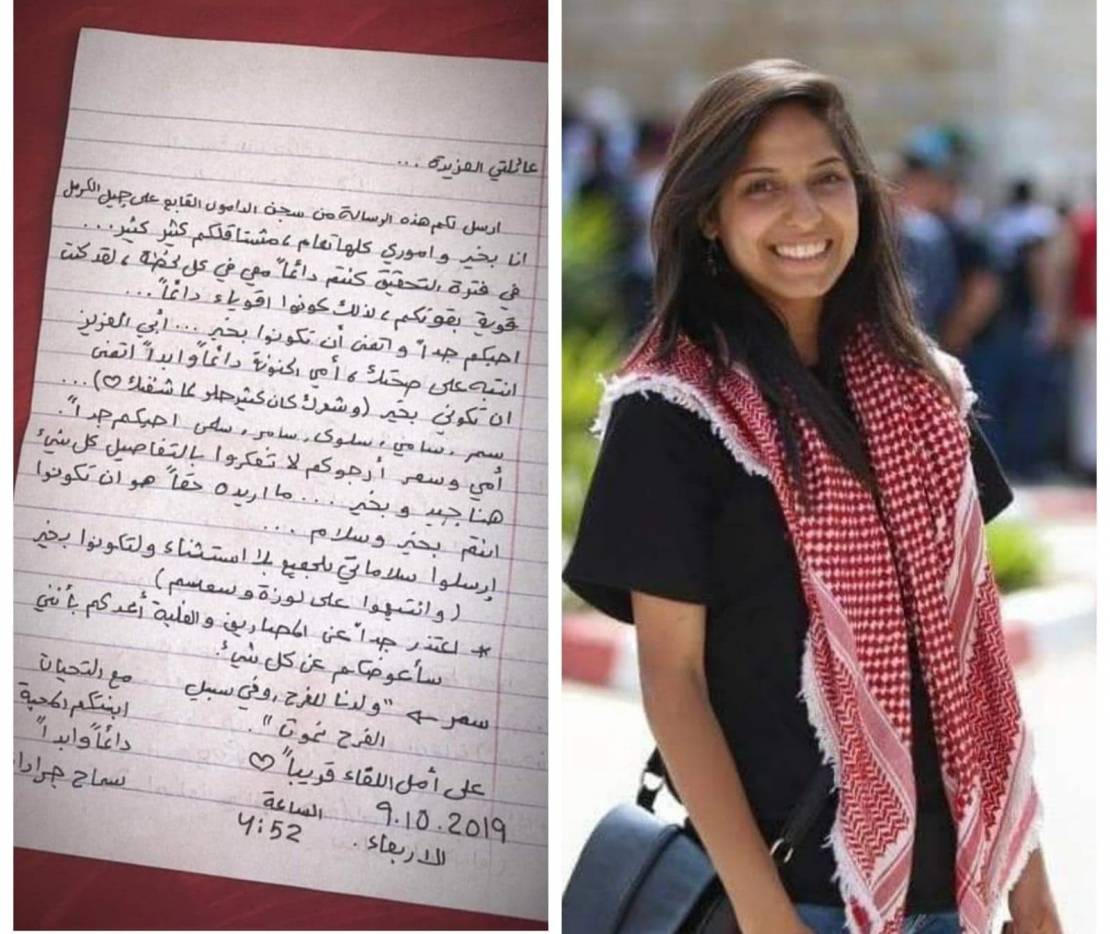 عائلتي العزيزة ...
ارسل لكم هذه الرسالة من سجن الدامون القابع على جبل الكرمل
انا بخير و اموري كلها تمام ، مشتاقلكم كثير كثير...
في فترة التحقيق كنتم دائماً معي في كل لحظة ، لقد كنت
قوية بقوتكم ، لذلك كونوا اقوياء دائماً ...
احبكم جداً و اتمنى أن تكونوا بخير ... أبي العزيز
انتبه على صحتك ، أمي الحنونة دائماً وابداً اتمنى
ان تكوني بخير (وشعرك كان كثير حلو لما شفتك ♡)...
سمر ، سامي ، سلوى ، سامر ، سلمى احبكم جداً .
أمي وسمر أرجوكم لا تفكروا بالتفاصيل كل شيء
هنا جيد و بخير ... ما اريده حقاً هو ان تكونوا
انتم بخير وسلام ...
إرسلوا سلاماتي للجميع بلا استثناء ولتكونوا بخير
( وانتبهوا على لوزة وسمسم )
* اعتذر جداً عن المصاريف والغلبة أعدكم بأنني
سأعوضكم عن كل شيء .
سمر ← "ولدنا للفرح ، وفي سبيل
الفرح نموت" .
على أمل اللقاء قريباً ♡
9.10.2019 الساعة
الاربعاء . 4:52
مع التحيات
ابنتكم المحبة
دائماً وابداً
سماح جرادات